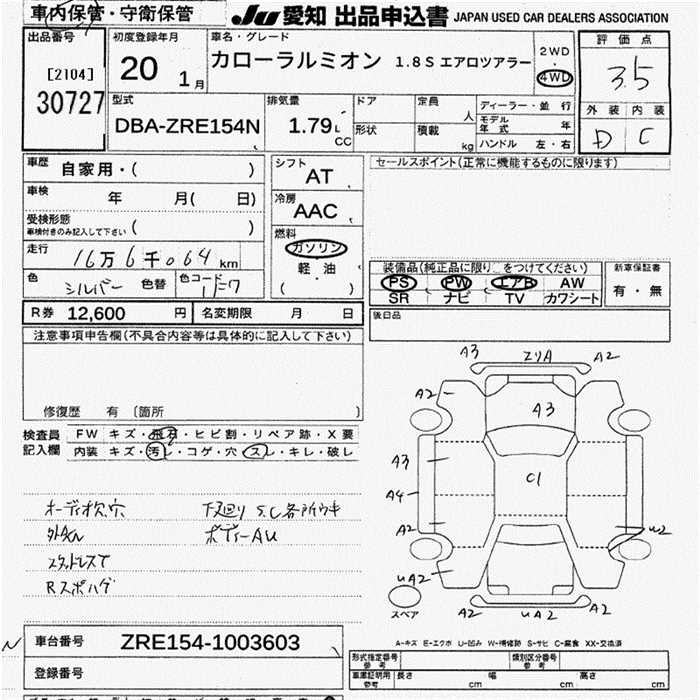 車内保管・守衛保管
JU 愛知 出品申込書 JAPAN USED CAR DEALERS ASSOCIATION
出品番号
[2104]
30727
初度登録年月
20 1月
車名・グレード
カローラルミオン 1.8S エアロツアラー
2WD
4WD
評価点
3.5
外装 内装
D C
型式
DBA-ZRE154N
排気量
1.79 L
CC
ドア
形状
定員
人
積載
kg
ディーラー・並行
モデル年式 年
ハンドル 左・右
車歴 自家用・( )
車検 年 月( 日)
受検形態
車検付きのみ記入して下さい ( )
走行 16万6千064km
色 シルバー 色替 色コード 1F7
シフト
AT
冷房
AAC
燃料
ガソリン
軽・油
( )
R券 12,600円 名変期限 月 日
セールスポイント(正常に機能するものに限ります)
装備品(純正品に限り○をつけてください)
PS PW エアB AW
SR ナビ TV カワシート
新車保証書
有・無
後日品
注意事項申告欄(不具合内容等は具体的に記入して下さい)
修復歴 有 〔箇所 〕
検査員
記入欄
FW キズ・飛石・ヒビ割・リペア跡・X要
内装 キズ・汚レ・コゲ・穴・スレ・キレ・破レ
オーディオ欠穴
スタットレスT
Rスポハゲ
下廻りS,C各所ウキ
ボディーAU
A3 A2
A2
A3
A3
C1
A4
A2
U2
UA2
A2 UA2 A2
スペア
A-キズ E-エクボ U-凹み W-補修跡 S-サビ C-腐食 XX-交換済
車台番号 ZRE154-1003603
登録番号
形式指定番号
参考
類別区分番号
参考
車庫証明用
参考
長さ cm 幅 cm 高さ cm